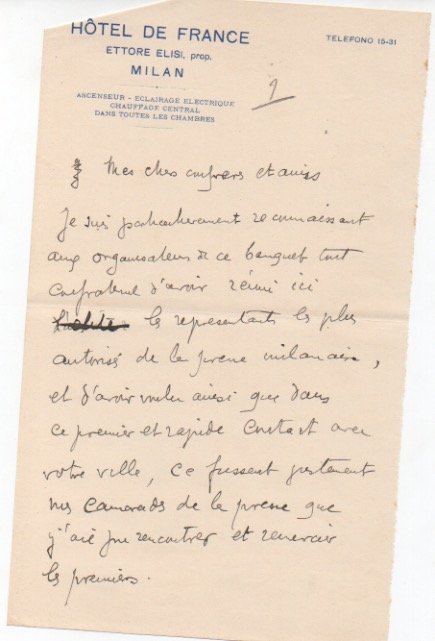 HÔTEL DE FRANCE
TELEFONO 15-31
ETTORE ELISI, prop.
MILAN
ASCENSEUR - ECLAIRAGE ELECTRIQUE
CHAUFFAGE CENTRAL
DANS TOUTES LES CHAMBRES
1
Mes chers confrères et amis
Je suis particulièrement reconnaissant
aux organisateurs de ce banquet tout
confraternel d'avoir réuni ici
les représentants les plus
autorisés de la presse milanaise,
et d'avoir voulu aussi que dans
ce premier et rapide contact avec
votre ville, ce fussent justement
mes camarades de la presse que
j'aie pu rencontrer et remercier
les premiers.